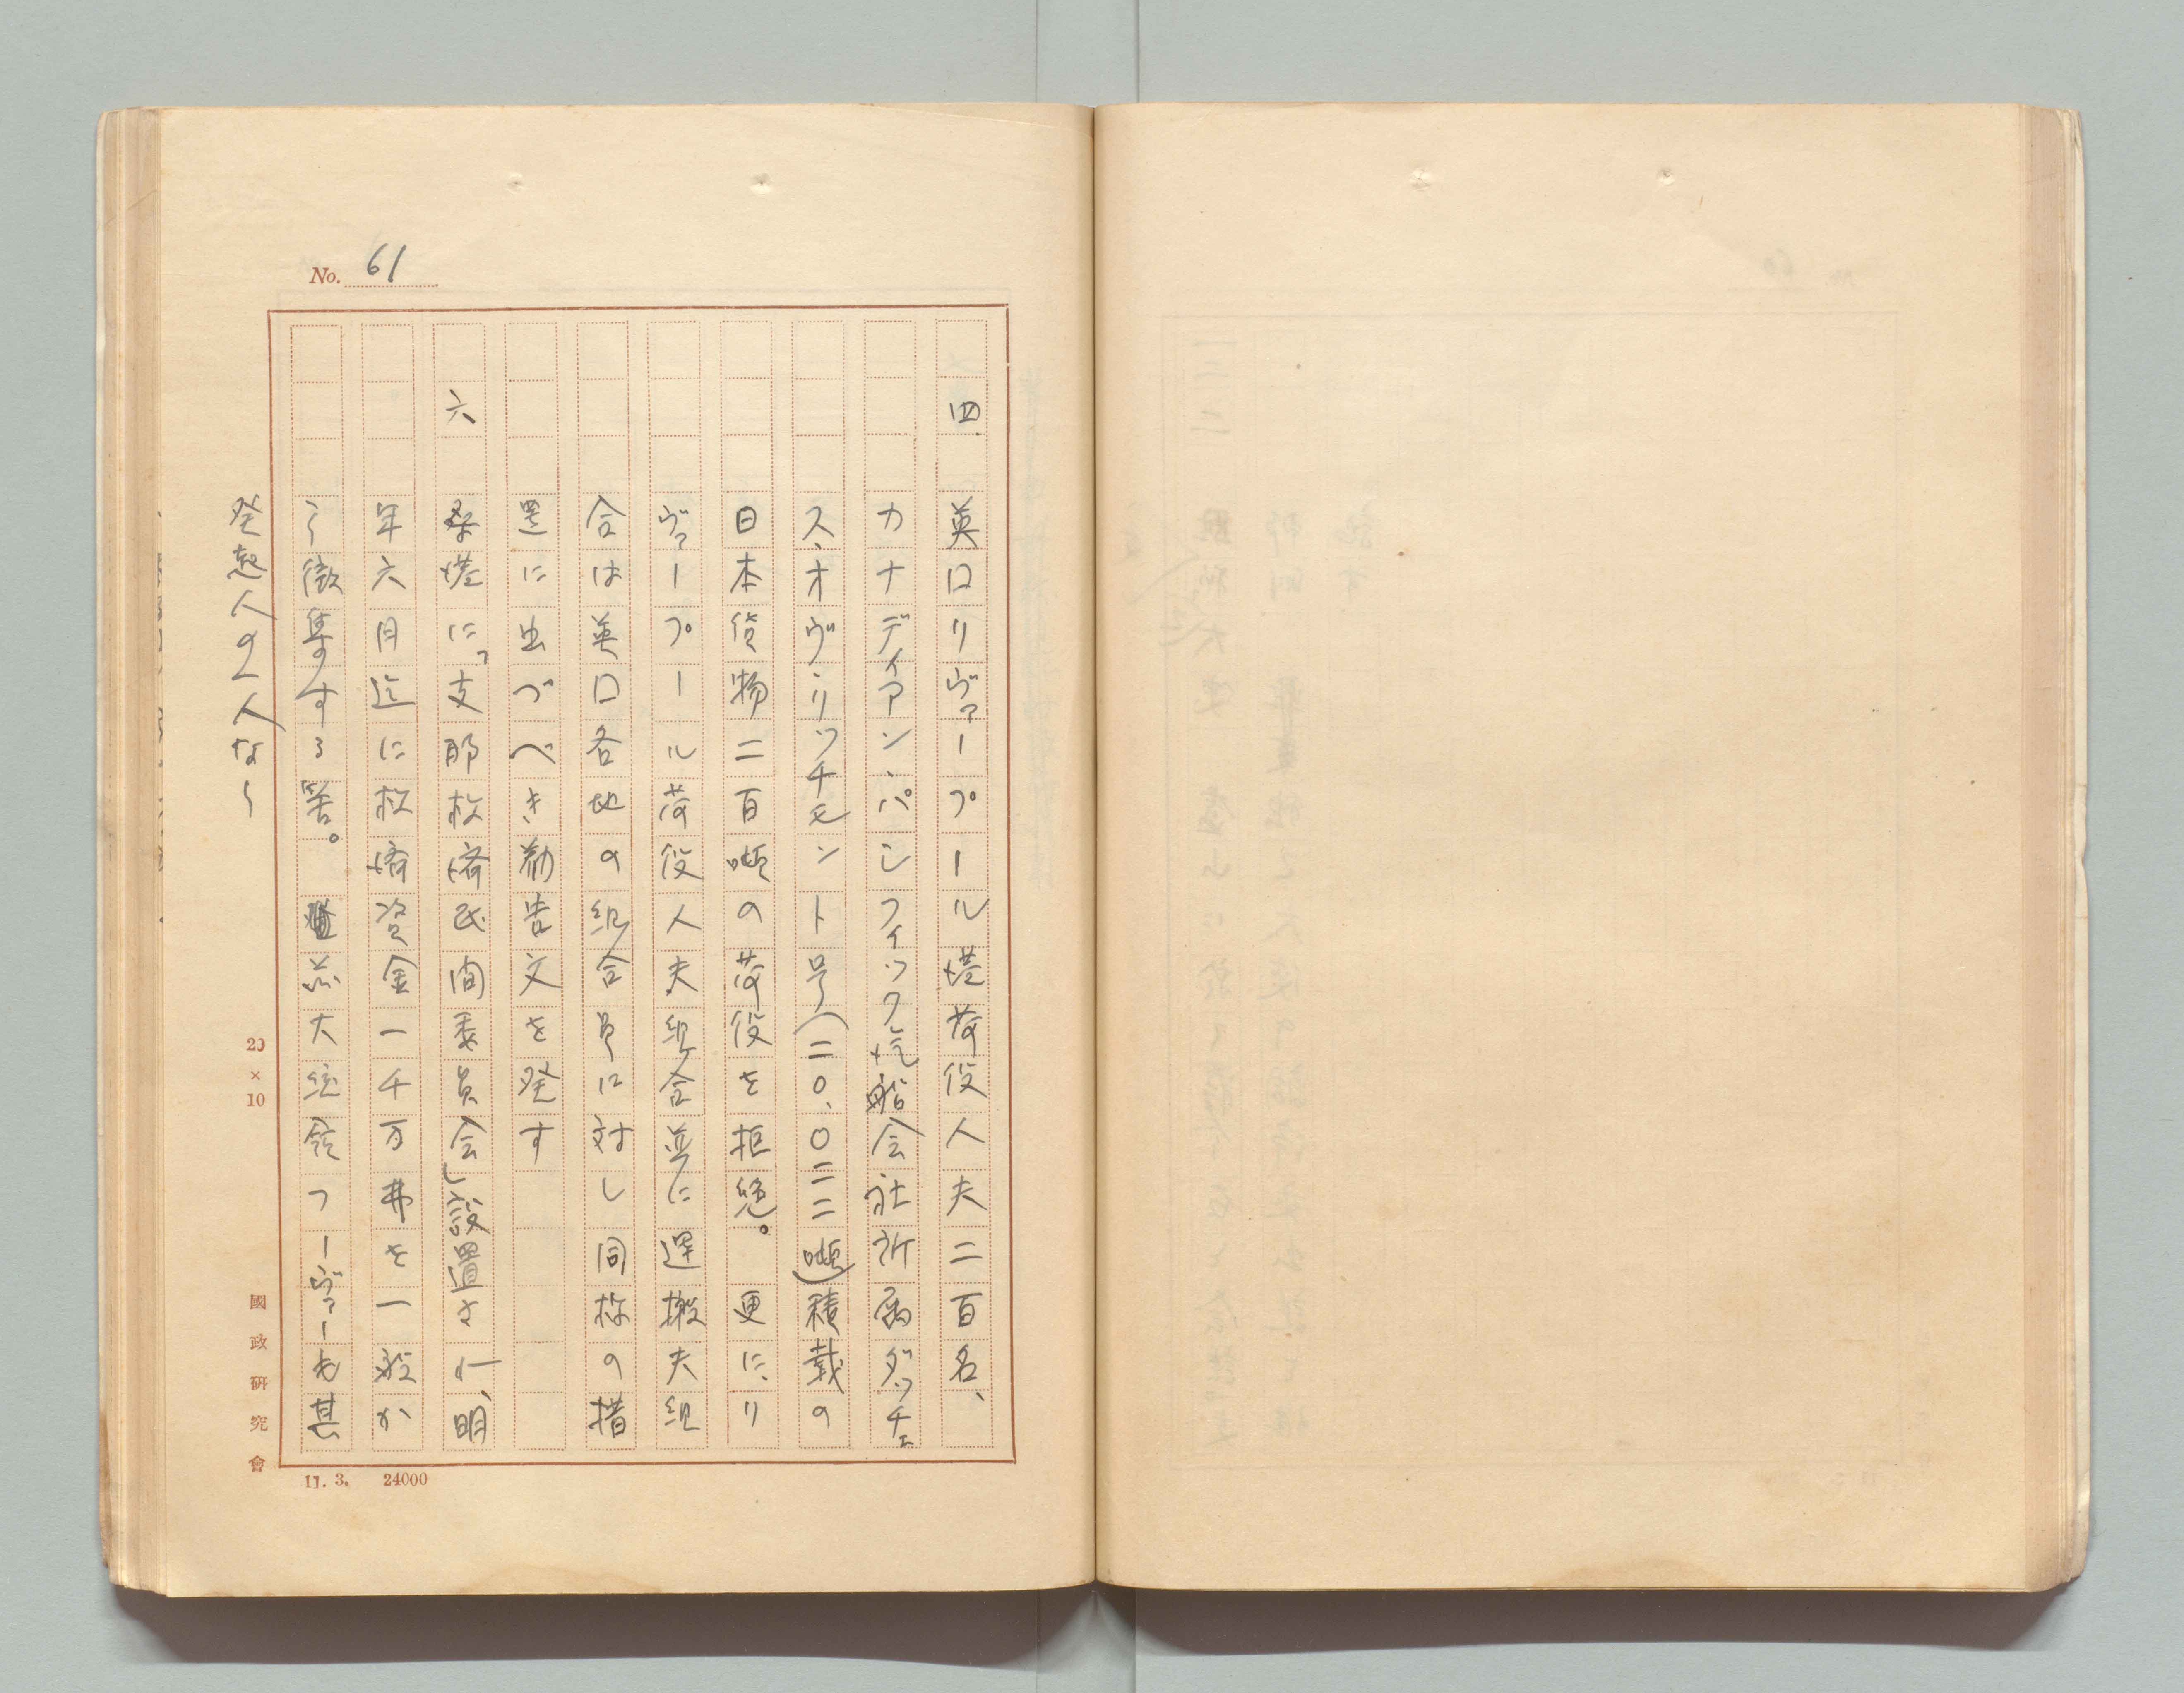 No. 61
四 英国リヴァープール港荷役人夫二百名、
カナディアン、パシフィック汽船会社所属ダッチェ
ス、オヴ、リッチモント号(二〇、〇二二噸)積載の
日本貨物二百噸の荷役を拒絶。 更に、リ
ヴァープール荷役人夫組合並に運搬夫組
合は英国各地の組合員に対し同様の措
置に出づべき勧告文を発す
六 桑港に、「支那救済民間委員会」設置され、明
年六月迄に救済資金一千万弗を一般か
ら徴集する筈。 前大統領フーヴァーも其
発起人の一人なり
20×10 國政研究會
11. 3. 24000